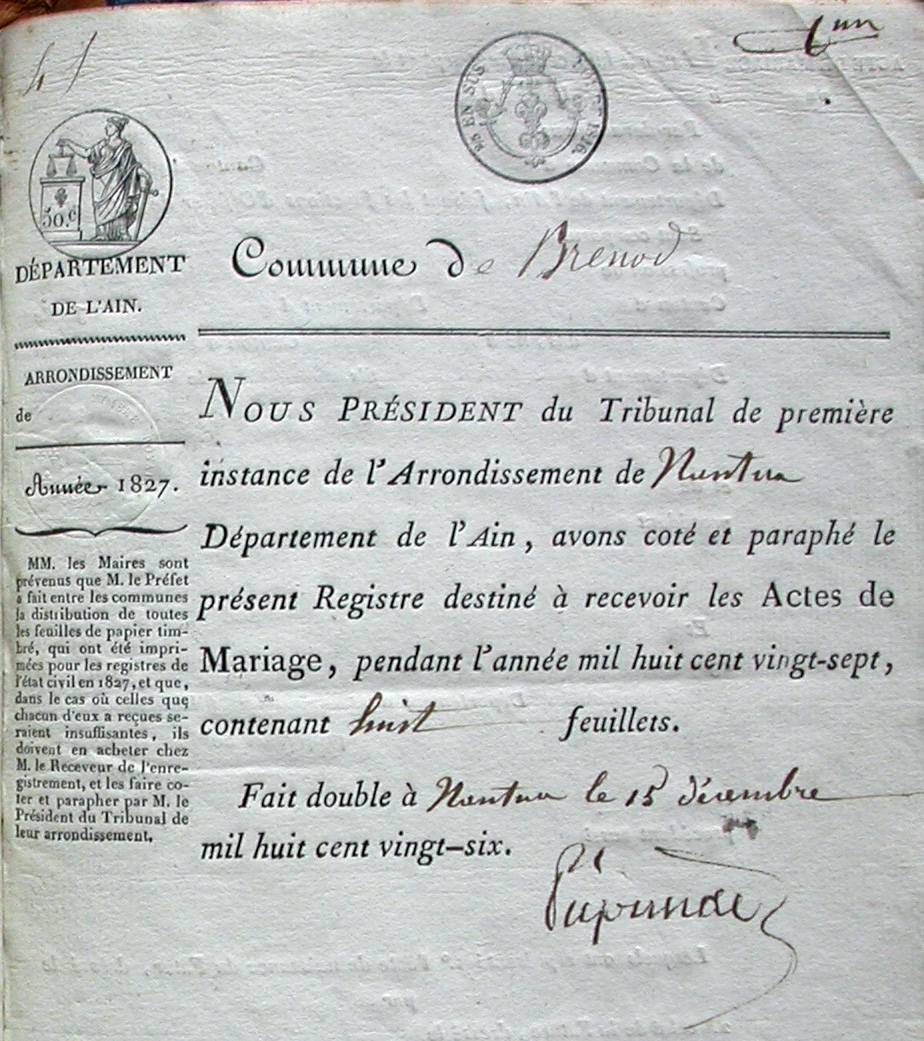 un
25 EN SUS
LOI DE 1816.
50.c
DÉPARTEMENT
DE L'AIN.
ARRONDISSEMENT
de
Année 1827.
MM. les Maires sont
prévenus que M. le Préfet
a fait entre les communes
la distribution de toutes
les feuilles de papier tim-
bré, qui ont été impri-
mées pour les registres de
l'état civil en 1827, et que,
dans le cas où celles que
chacun d'eux a reçues se-
raient insuffisantes, ils
doivent en acheter chez
M. le Receveur de l'enre-
gistrement, et les faire co-
ter et parapher par M. le
Président du Tribunal de
leur arrondissement.
Commune de Brenod
NOUS PRÉSIDENT du Tribunal de première
instance de l'Arrondissement de Nantua
Département de l'Ain, avons coté et paraphé le
présent Registre destiné à recevoir les Actes de
Mariage, pendant l'année mil huit cent vingt-sept,
contenant huit feuillets.
Fait double à Nantua le 15 décembre
mil huit cent vingt-six.